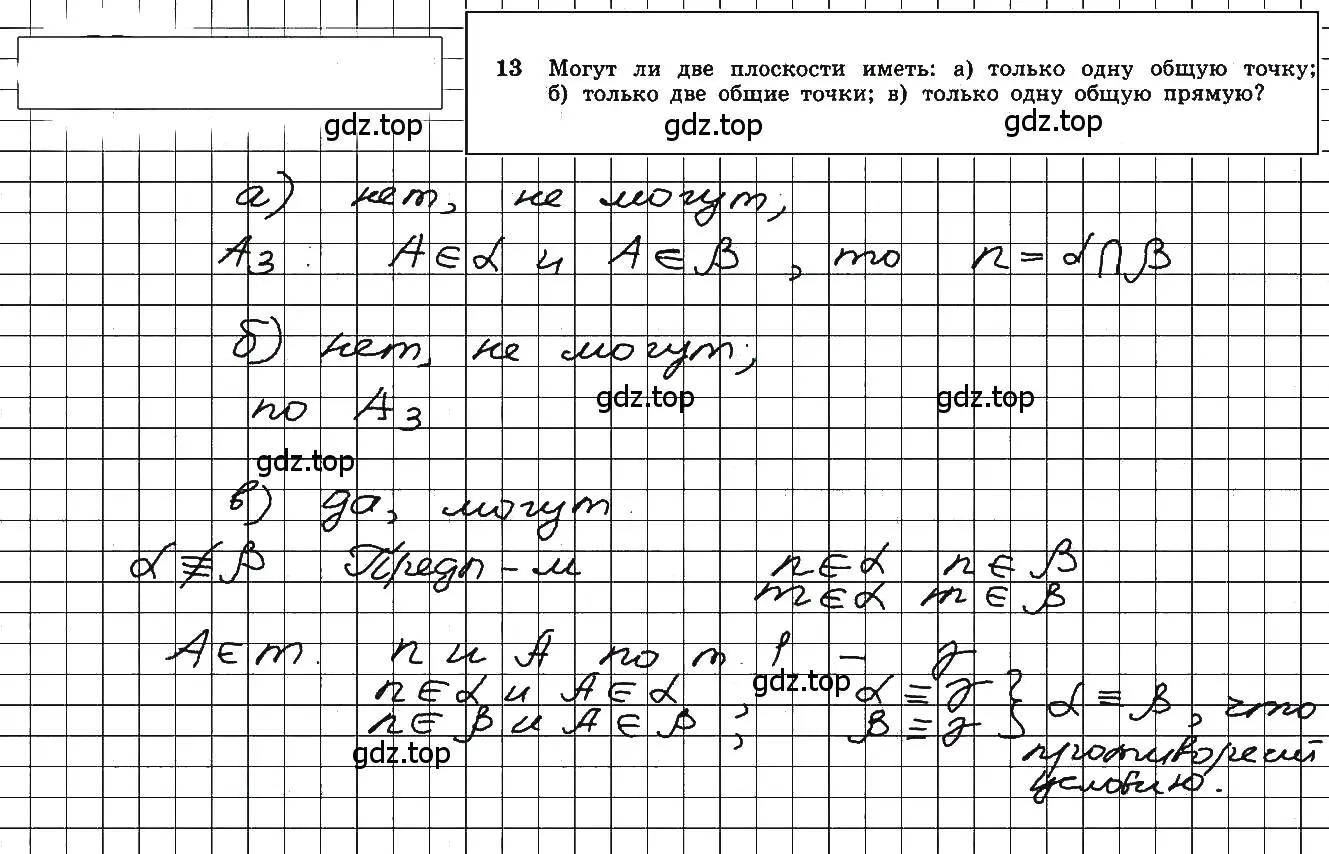 13 Могут ли две плоскости иметь: а) только одну общую точку;
б) только две общие точки; в) только одну общую прямую?
gdz.top gdz.top gdz.top
а) нет, не могут;
А₃: A∈α и A∈β, то n=α∩β
б) нет, не могут;
gdz.top gdz.top
по А₃
gdz.top
в) да, могут
α≢β Предп-м n∈α n∈β
m∈α m∈β
A∈m. n и A по т. 1 – γ
gdz.top
n∈α и A∈α; α≡γ } α≡β, что
n∈β и A∈β; β≡γ
gdz.top
противоречит
условию.